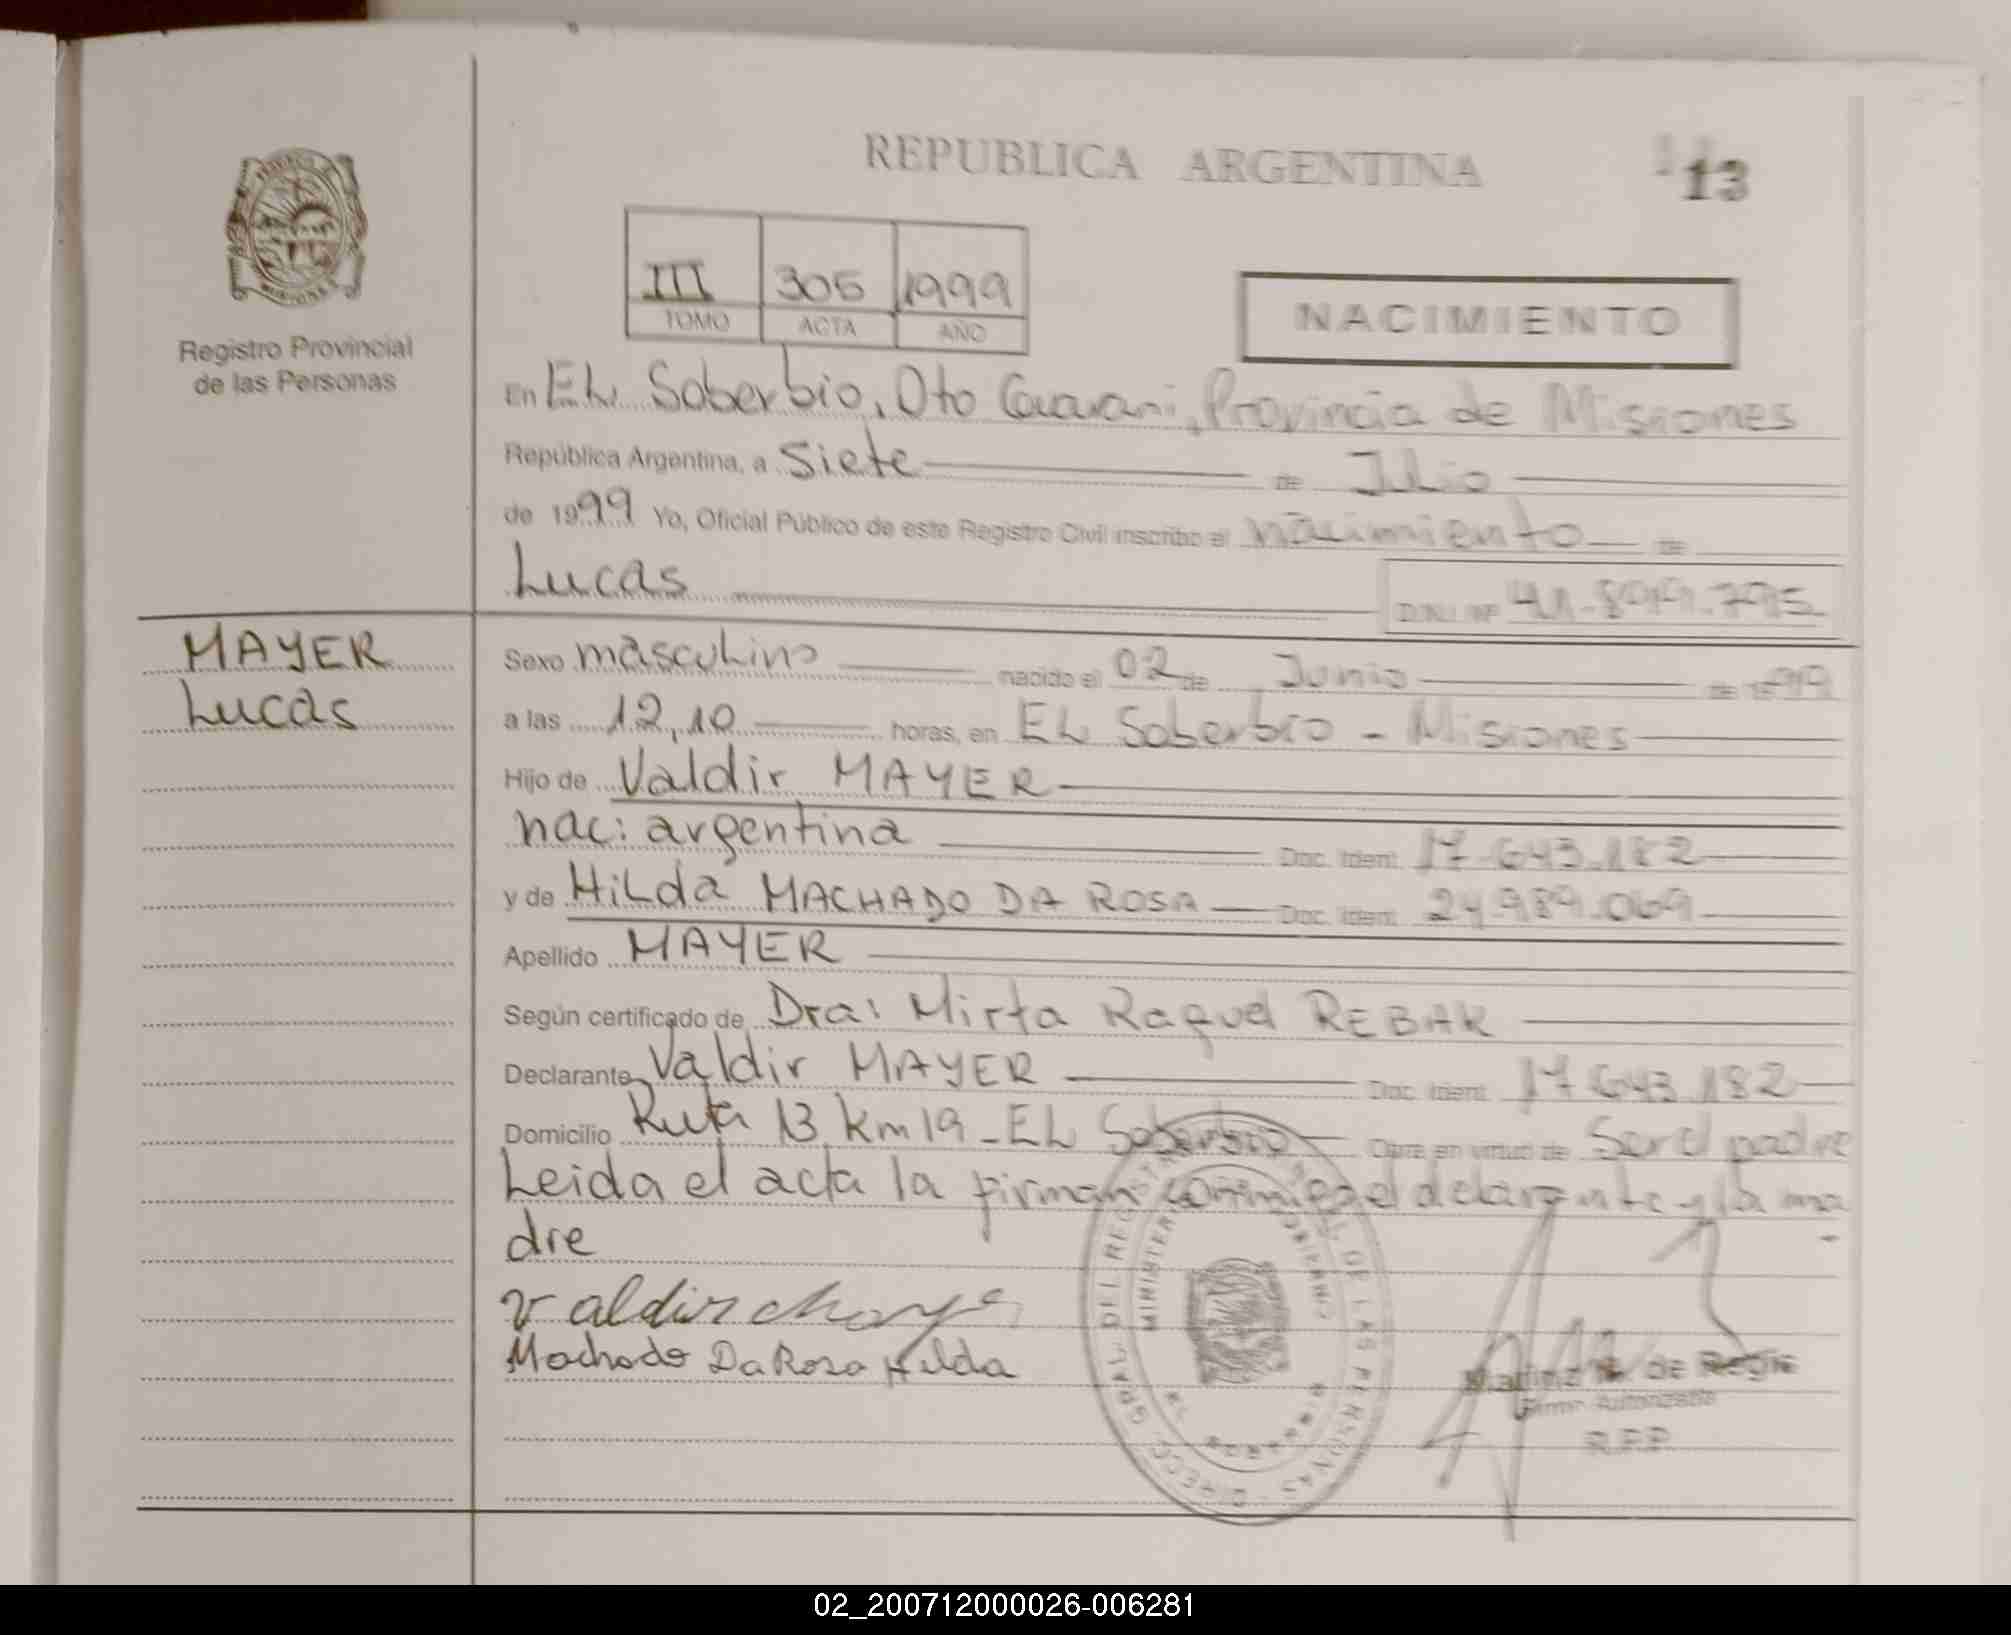 REPUBLICA ARGENTINA
13
III 305 1999
TOMO ACTA AÑO
NACIMIENTO
Registro Provincial
de las Personas
En EL Soberbio, Dto Guarani, Provincia de Misiones
República Argentina, a Siete de Julio
de 1999 Yo, Oficial Público de este Registro Civil inscribo el nacimiento de
Lucas D.N.I. Nº 41.899.795
MAYER
Lucas
Sexo masculino nacido el 02 de Junio de 1999
a las 12,10 horas, en EL Soberbio - Misiones
Hijo de Valdir MAYER
nac: argentina Doc. Ident. 17.643.182
y de HiLda MACHADO DA ROSA Doc. Ident. 24.989.069
Apellido MAYER
Según certificado de Dra: Mirta Raquel REBAK
Declarante Valdir MAYER Doc. Ident. 17.643.182
Domicilio Ruta 13 Km 19 - EL Soberbio Obra en virtud de Ser el padre
Leida el acta la firman conmigo el delarante y la ma
dre
Valdir Mayer
Machado Da Rosa Hilda
DIRECC. GRAL. DEL REGISTRO PROVINCIAL DE LAS PERSONAS
MINISTERIO DE GOBIERNO
de Regie
Firma Autorizada
R.P.P.
02_200712000026-006281